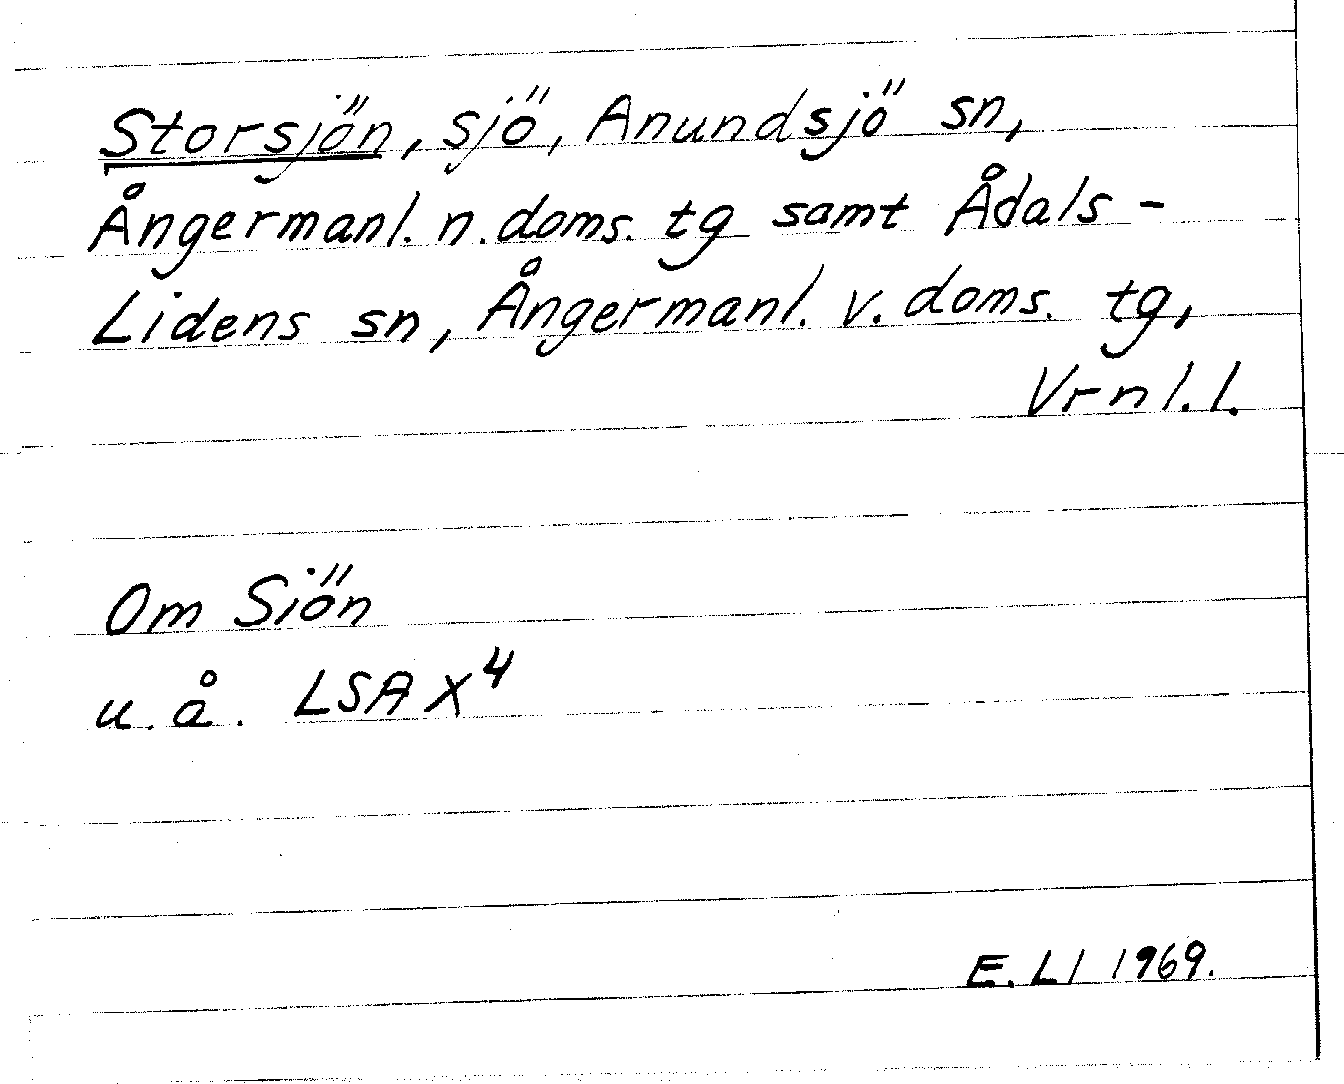 Storsjön, sjö, Anundsjö sn,
Ångermanl. n. doms. tg samt Ådals-
Lidens sn, Ångermanl. v. doms. tg,
Vrnl. l.
Om Siön
u. å. LSA X4
E. Ll 1969.